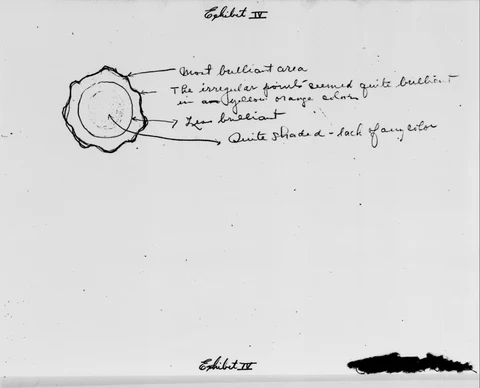 Exhibit IV
Most brilliant area
The irregular points seemed quite brilliant
in a yellow orange color
Less brilliant
Quite shaded - lack of any color
Exhibit IV